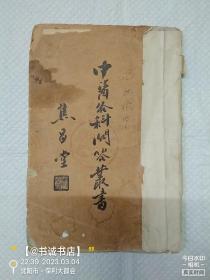 中医各科问答丛书
焦易堂
@诚诚书店
22:39 2023.03.04
沈阳市·保利大都会
今日水印
相机
真实时间